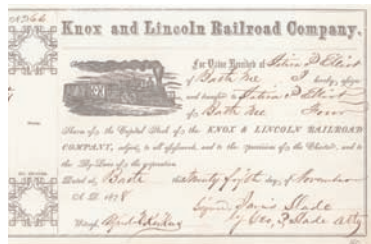 Knox and Lincoln Railroad Company.
For Value Received of
of Bath Me I hereby assign
and transfer to
of Bath Me Four
Shares of the Capital Stock of the KNOX & LINCOLN RAILROAD
COMPANY, subject to all assessments, and to the provisions of the Charter, and to
the By-Laws of the Corporation
Dated at Bath this twenty fifth day of November
A. D. 1878
Signed Slade
Witness, by Geo. Slade Atty